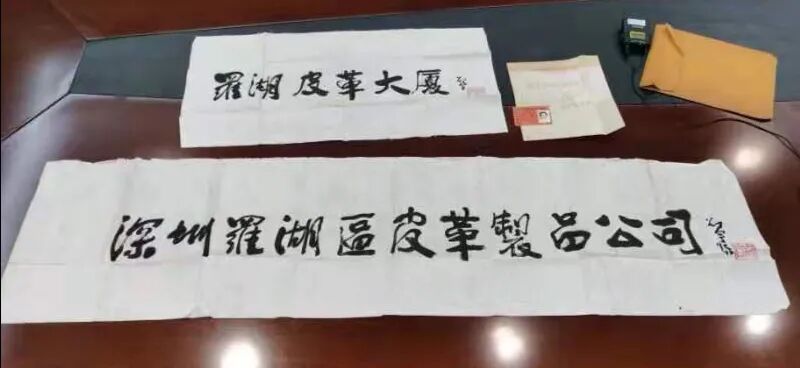 羅湖皮革大厦
深圳羅湖區皮革製品公司